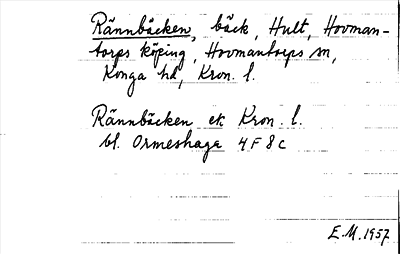 Rännbäcken, bäck, Hult, Hovman-
torps köping, Hovmantorps sn,
Konga hd, Kron. l.
Rännbäcken ek Kron. l.
bl. Ormeshaga 4F8c
E.M. 1957